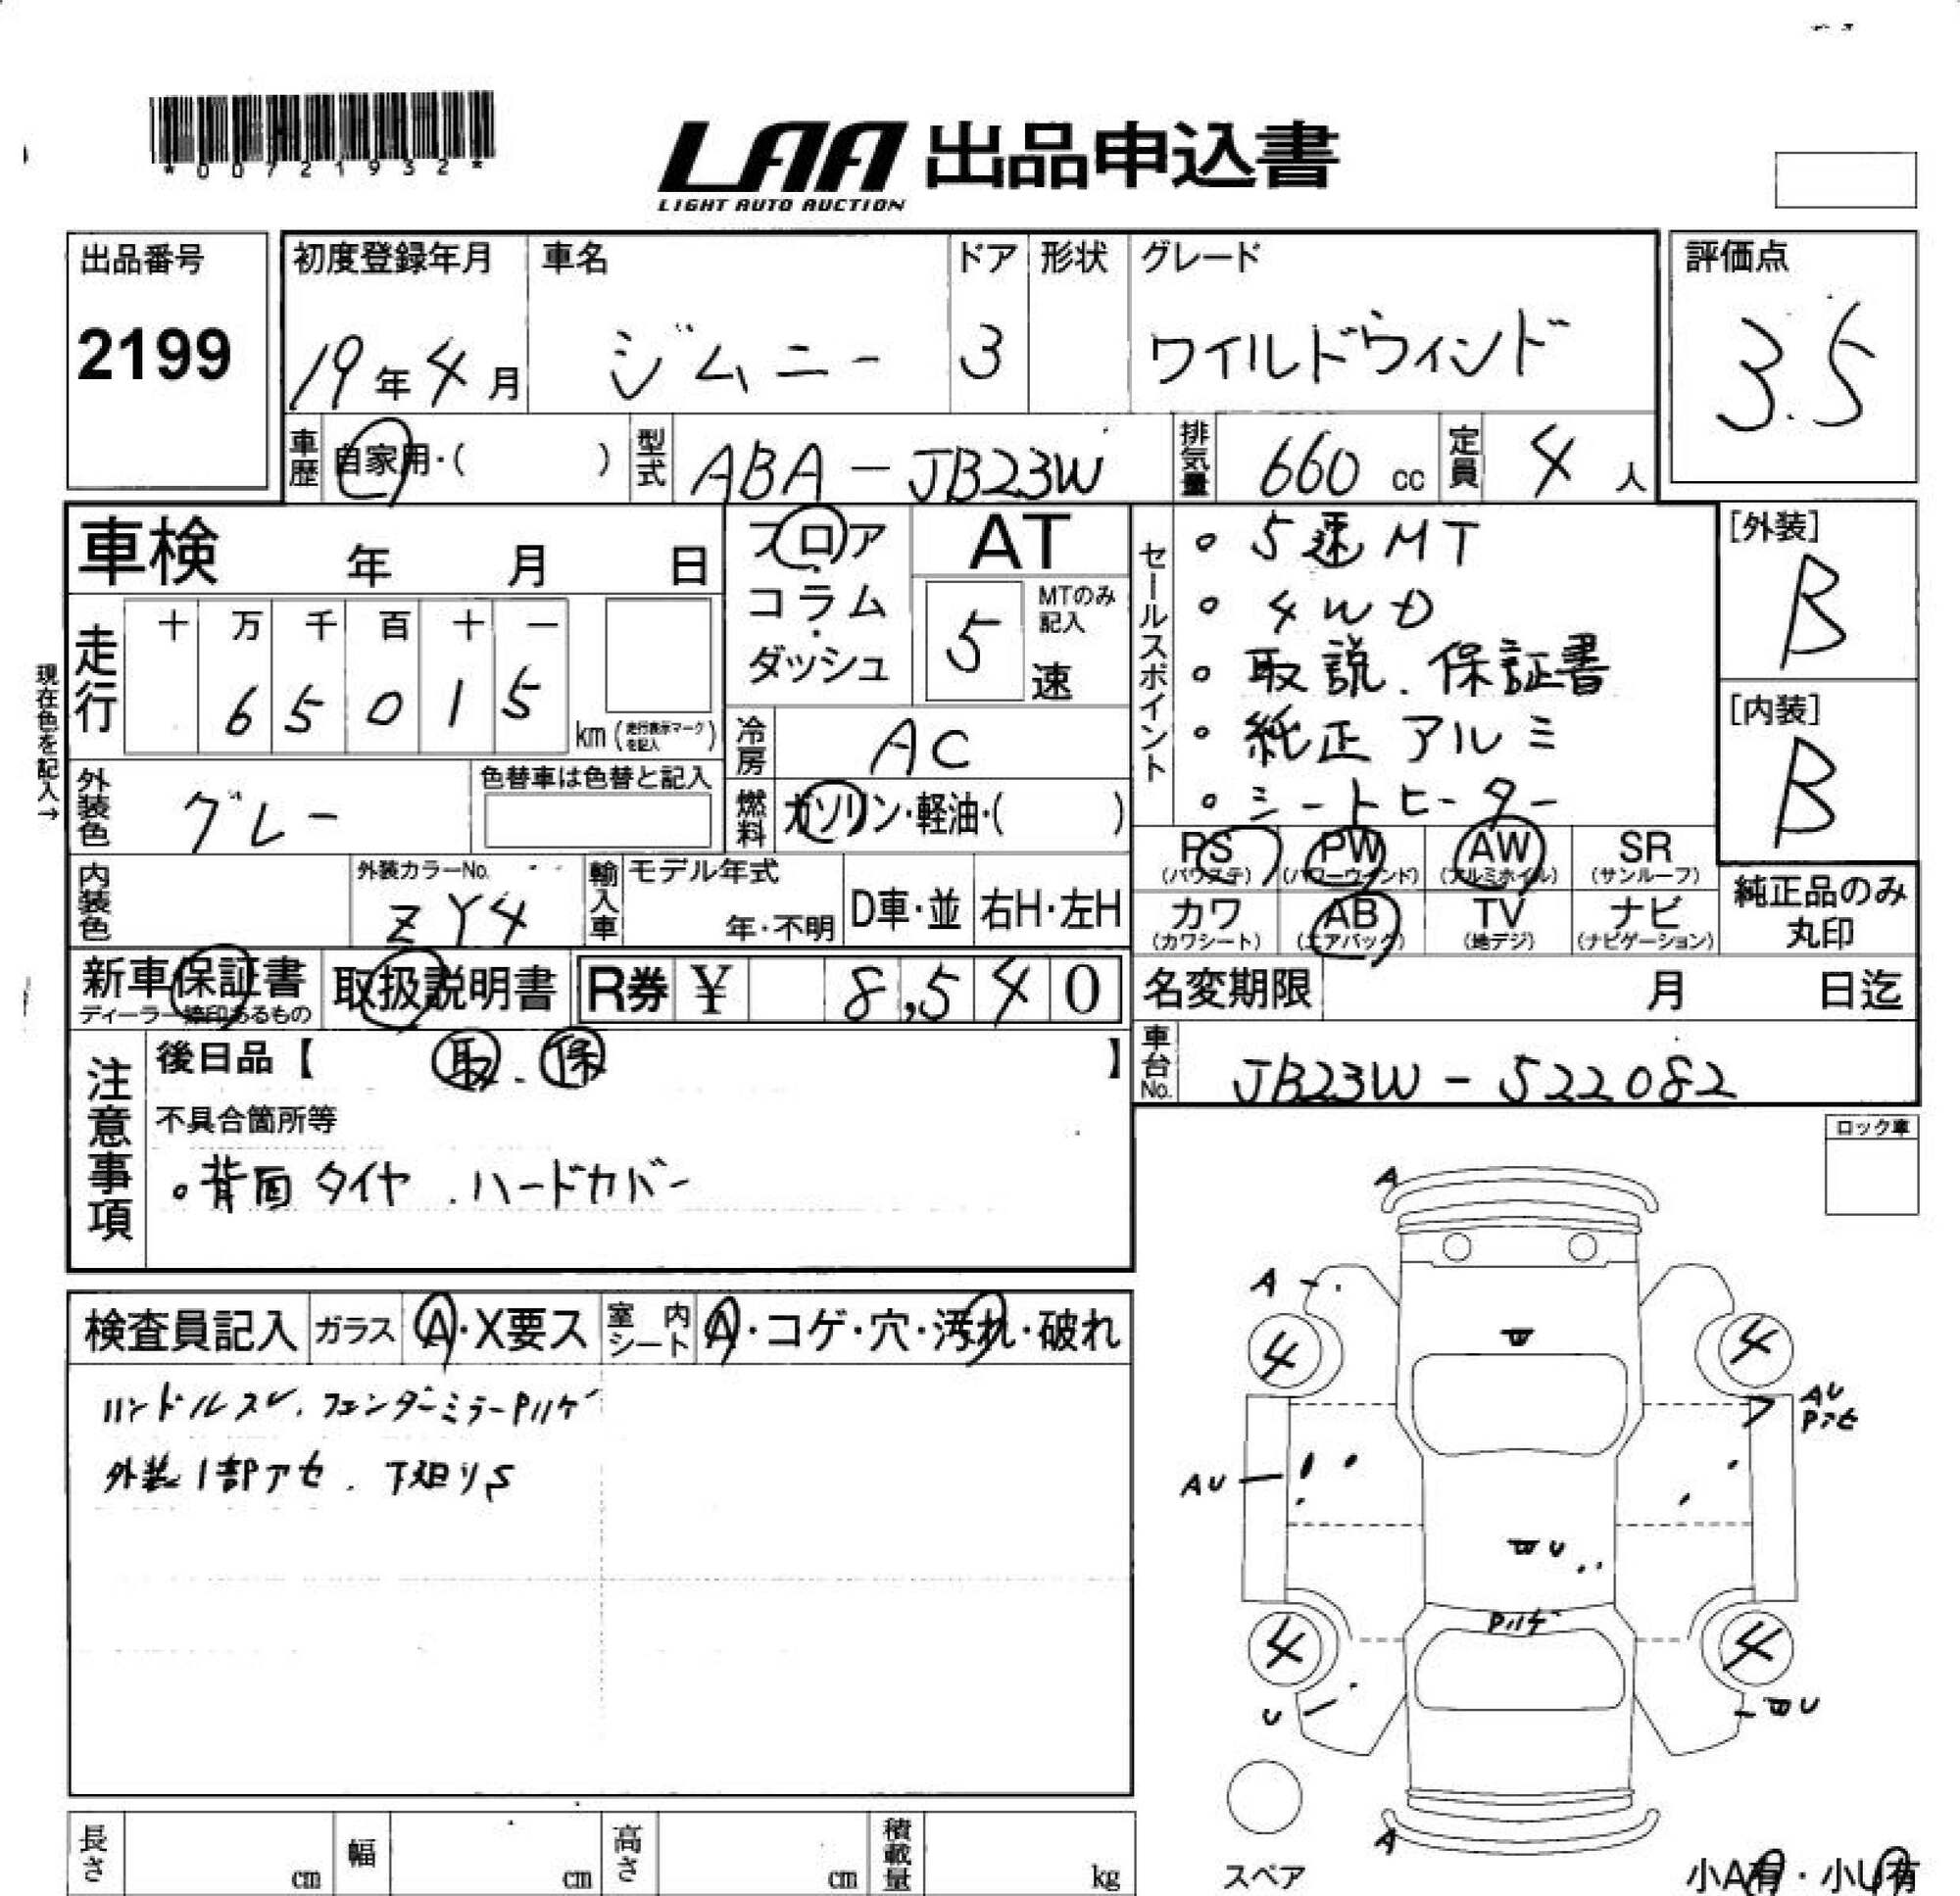 *00721932*
LAA 出品申込書
LIGHT AUTO AUCTION
出品番号
2199
初度登録年月 車名 ドア 形状 グレード
19年4月 ジムニー 3 ワイルドウィンド
評価点
3.5
車歴 自家用・( ) 型式 ABA-JB23W 排気量 660 cc 定員 4 人
車検 年 月 日
フロア・コラム・ダッシュ
AT
5 速 MTのみ記入
走行 十 万 千 百 十 一
6 5 0 1 5
km (走行表示マークを記入)
現在色を記入→
冷房 AC
外装色 グレー 色替車は色替と記入
燃料 ガソリン・軽油・( )
内装色 外装カラーNo. ZY4
輸入車 モデル年式 年・不明 D車・並 右H・左H
セールスポイント
。5速MT
。4WD
。取説.保証書
。純正アルミ
。シートヒーター
[外装]
B
[内装]
B
PS (パワステ) PW (パワーウインド) AW (アルミホイル) SR (サンルーフ)
カワ (カワシート) AB (エアバック) TV (地デジ) ナビ (ナビゲーション)
純正品のみ丸印
新車保証書 取扱説明書 R券 ¥ 8,540
ディーラー捺印あるもの
名変期限 月 日迄
車台No. JB23W-522082
注意事項
後日品【 取.保 】
不具合箇所等
。背面タイヤ.ハードカバー
ロック車
検査員記入 ガラス A・X要ス 室内シート A・コゲ・穴・汚れ・破れ
ハンドルスレ.フェンダーミラーPハゲ
外装1部アセ.下廻りS
A
A
4 4
AU
Pアセ
AU
W
WU
Pハゲ
4 4
U
WU
A
スペア
小A有・小U有
長さ cm 幅 cm 高さ cm 積載量 kg